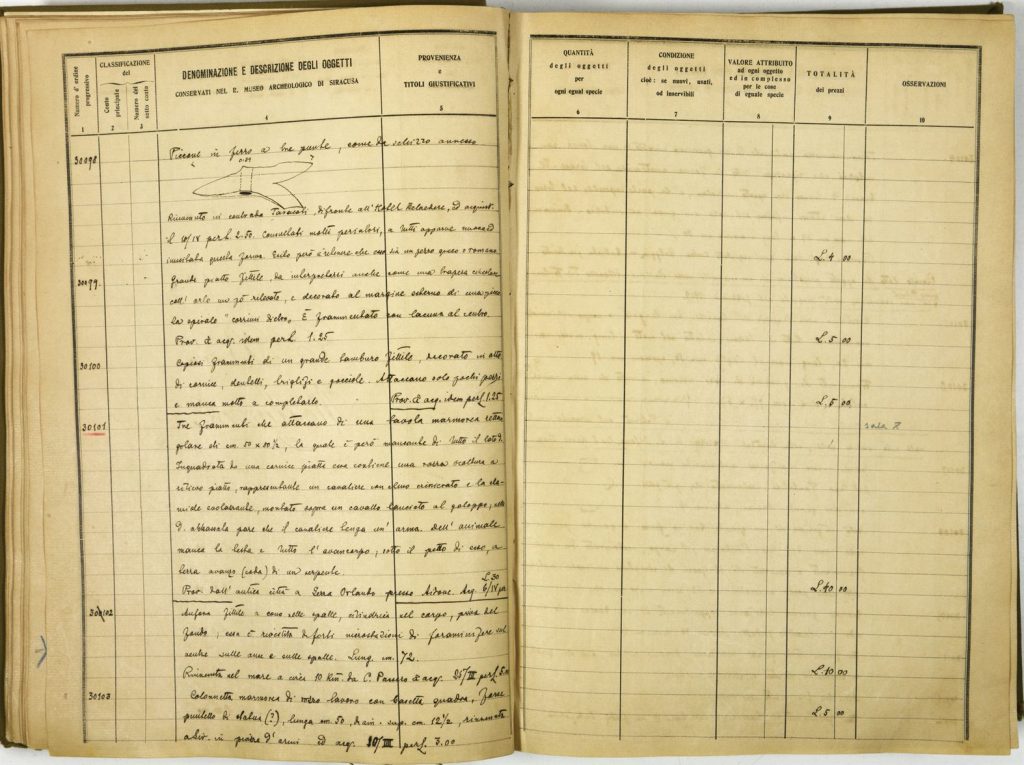 Numero d'ordine progressivo
CLASSIFICAZIONE
del
Conto principale
Numero del sotto conto
DENOMINAZIONE E DESCRIZIONE DEGLI OGGETTI
CONSERVATI NEL R. MUSEO ARCHEOLOGICO DI SIRACUSA
PROVENIENZA
e
TITOLI GIUSTIFICATIVI
1 2 3 4 5
30098
Piccone in ferro a tre punte, come da schizzo annesso
Rinvenuto in contrada difronte all' ed acquist.
il 10/IV per L. 2.50. Consultati molti periziori, a tutti apparve nuova ed
inusitata questa forma. però è a ritenere che esso sia un pezzo greco o romano
30099
Grande piatto fittile, da interpretarsi anche come una trapeza circolare
coll' orlo un pò rilevato, e decorato al margine esterno di una
la spirale "corrimi dietro". È frammentato con lacuna al centro.
Prov. & acq. idem per L. 1.25
30100
Copiosi frammenti di un grande tamburo fittile, decorato in alto
di cornice, dentelli, e gocciole. Attaccano solo pochi pezzi
e manca molto a completarlo. Prov. & acq. idem per L. 1.25
30101
Tre frammenti che attaccano di una tavola marmorea rettan
golare di cm. 50 x 80½, la quale è però mancante di tutto il lato d.
Inquadrata da una cornice piatta essa contiene una rozza scultura a
rilievo piatto, rappresentante un cavaliere con elmo crinierato e la cla-
mide svolazzante, montato sopra un cavallo lanciato al galoppo; nella
d. abbassata pare che il cavaliere tenga un' arma. Dell' animale
manca la testa e tutto l' avancorpo; sotto il petto di esso, a
terra avanzo (coda) di un serpente.
Prov. dall' antica città a Serra Orlando presso Aidone. Acq. 6/IV per L. 30
30102
Anfora fittile a cono nelle spalle, cilindrica nel corpo, priva del
fondo; essa è rivestita di forti incrostazioni di foraminifere sul
ventre sulle anse e sulle spalle. Lung. cm. 72.
Rinvenuta nel mare a circa 10 Km. da C. Passero & acq. 25/III per L. 5.00
30103
Colonnetta marmorea di mero lavoro con basetta quadra, forse
puntello di statua (?), lunga cm. 50, diam. sup. cm. 12½, rinvenuta
a Sir. in piazza d' armi ed acq. 30/III per L. 3.00
QUANTITÀ
degli oggetti
per
ogni egual specie
CONDIZIONE
degli oggetti
cioè: se nuovi, usati,
od inservibili
VALORE ATTRIBUITO
ad ogni oggetto
ed in complesso
per le cose
di eguale specie
TOTALITÀ
dei prezzi
OSSERVAZIONI
6 7 8 9 10
L. 4 00
L. 5 00
L. 5 00
sala
L. 40 00
L. 10 00
L. 5 00